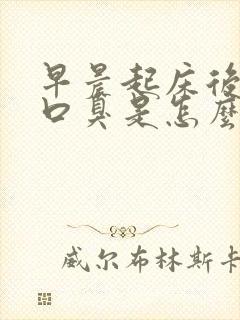 早晨起床後
口臭是怎麼
威尔布林斯卡